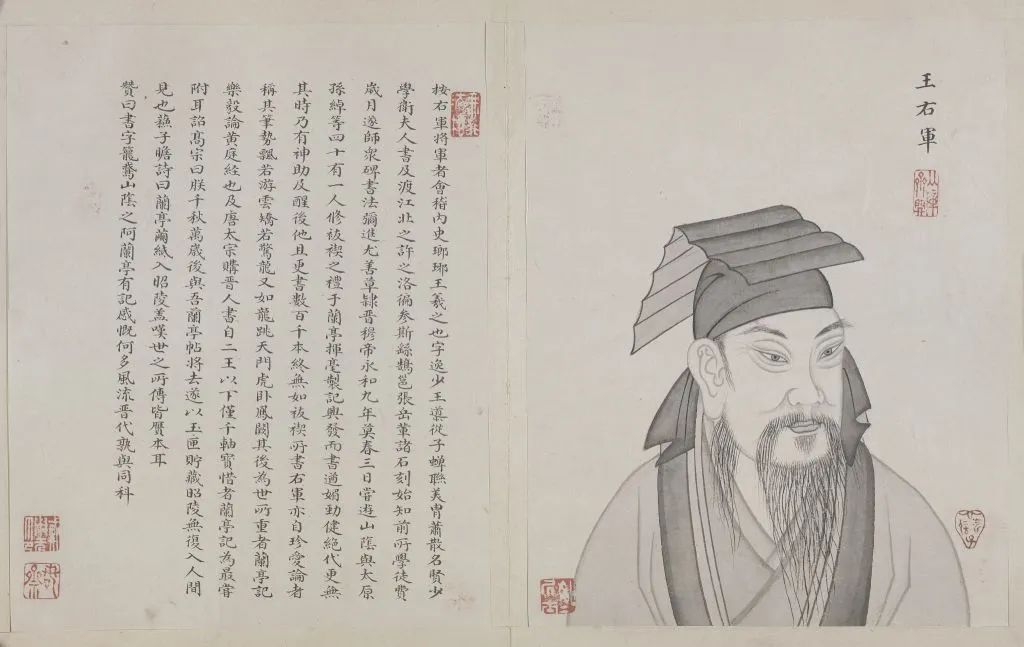 王右軍
按右軍將軍者會稽內史瑯琊王羲之也字逸少王導從子蟬聯美胄蕭散名賢少
學衛夫人書及渡江北之許之洛徧參斯繇鵠邕張岳華諸石刻始知前所學徒費
歲月遂師衆碑書法彌進尤善草隸晉穆帝永和九年莫春三日嘗遊山蔭與太原
孫綽等四十有一人修祓禊之禮于蘭亭揮毫製記興發而書遒媚勁健絕代更無
其時乃有神助及醒後他日更書數百千本終無如祓禊所書右軍亦自珍愛論者
稱其筆勢飄若游雲矯若驚龍又如龍跳天門虎卧鳳闕其後為世所重者蘭亭記
樂毅論黃庭經也及唐太宗購晉人書自二王以下僅千軸寶惜者蘭亭記為最嘗
附耳詔高宗曰朕千秋萬歲後與吾蘭亭帖將去遂以玉匣貯藏昭陵無復入人間
見也蘇子瞻詩曰蘭亭繭紙入昭陵蓋嘆世之所傳皆贋本耳
贊曰書字籠鵞山蔭之阿蘭亭有記感慨何多風流晉代孰與同科